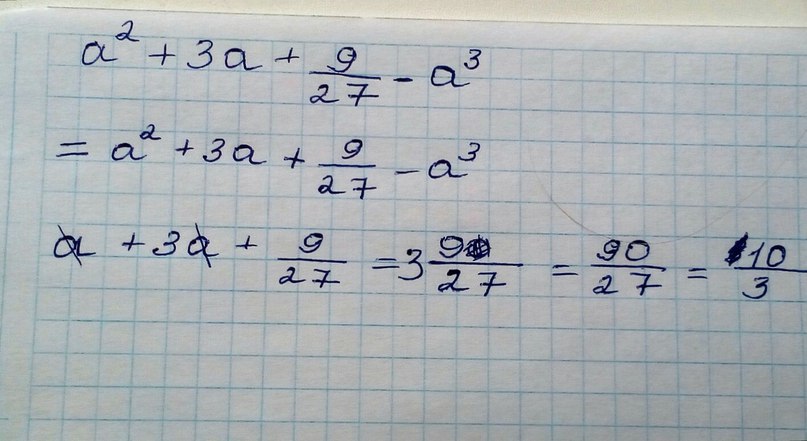 a² + 3a + 9/27 - a³
= a² + 3a + 9/27 - a³
a + 3a + 9/27 = 3 9/27 = 90/27 = 10/3